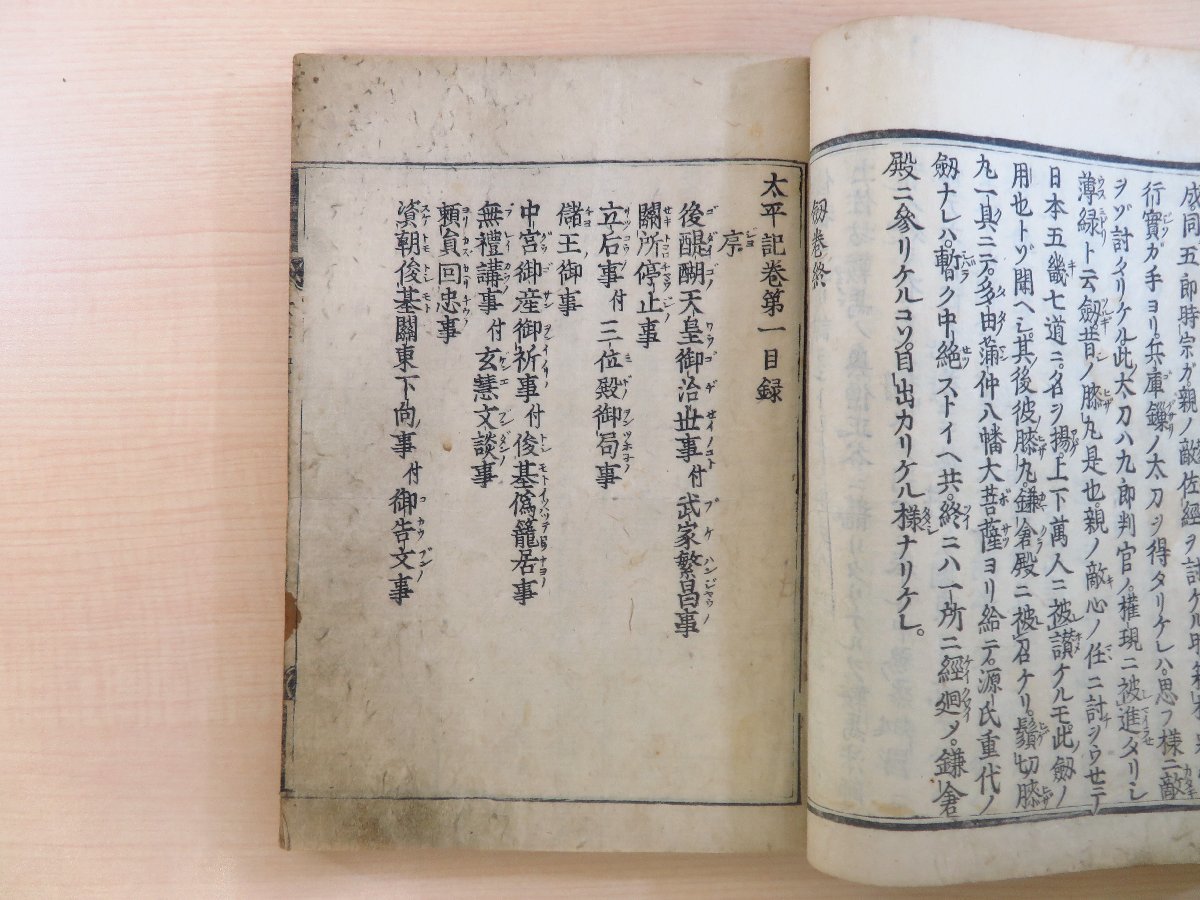 成同五郎時宗ガ親ノ敵佐經ヲ討ケル時
行實ガ手ヨリ兵庫鏁ノ太刀ヲ得タリケレハ思フ様ニ敵
ヲゾ討タリケル此太刀ハ九郎判官ノ權現ニ被進タリシ
薄緑ト云劔昔ノ膝丸是也親ノ敵心ノ任ニ討シウセテ
日本五畿七道ニ名ヲ揚上下萬人ニ被讃ケルモ此劔ノ
用也トゾ聞ヘシ其後彼膝丸鎌倉殿ニ被召ケリ鬚切膝
丸一具ニテ多由蒲仲八幡大菩薩ヨリ給テ源氏重代ノ
劔ナレハ暫ク中絶ストイヘ共終ニハ一所ニ經廻メ鎌倉
殿ニ參リケルコソ目出カリケル様ナリケレ。
劔卷終
太平記卷第一目録
序
後醍醐天皇御治世事付武家繁昌事
關所停止事
立后事付三位殿御局事
儲王御事
中宮御産御祈事付俊基僞籠居事
無禮講事付玄慧文談事
頼員回忠事
資朝俊基關東下向事付御告文事